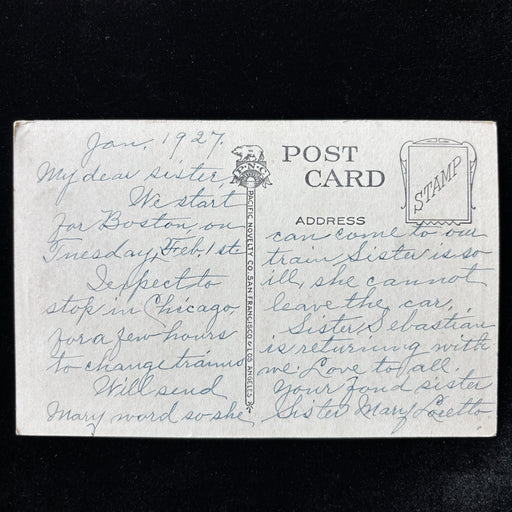 Jan. 1927.
My dear sister,
We start
for Boston, on
Tuesday, Feb. 1st.
I expect to
stop in Chicago,
for a few hours
to change trains
Will send
Mary word so she
P.N.C.
PACIFIC NOVELTY CO. SAN FRANCISCO & LOS ANGELES
POST
CARD
STAMP
ADDRESS
can come to our
train Sister is so
ill, she cannot
leave the car.
Sister Sebastian
is returning with
me. Love to all.
Your fond sister
Sister Mary Loretto.